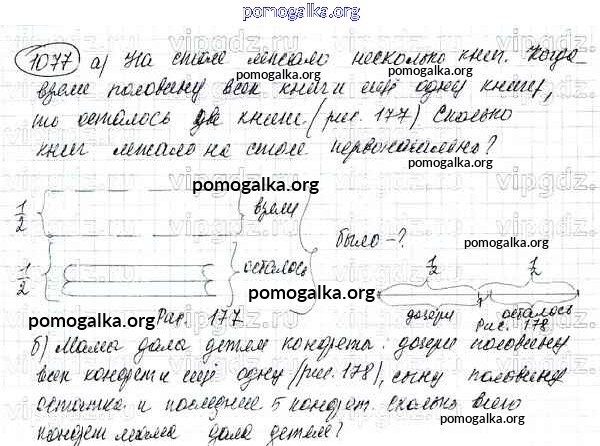 pomogalka.org
1077 а) На столе лежало несколько книг. Когда
pomogalka.org
взяли половину всех книг и ещё одну книгу,
то осталось две книги (рис. 177) Сколько
книг лежало на столе первоначально?
pomogalka.org
pomogalka.org
1/2 взяли
было - ?
pomogalka.org
1/2 осталось
1/2 1/2
pomogalka.org
pomogalka.org
дочери осталось
Рис. 177
Рис. 178
pomogalka.org
б) Мама дала детям конфеты: дочери половину
всех конфет и ещё одну (рис. 178), сыну половину
остатка и последние 5 конфет. Сколько всего
pomogalka.org
конфет мама дала детям?